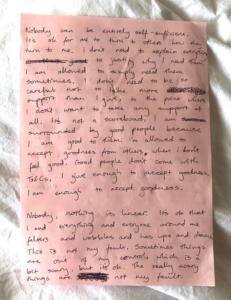 Nobody can be entirely self-sufficient.
It's ok for me to turn to others how they
turn to me. I don't need to explain everything
to justify why I need them.
I am allowed to simply need them
sometimes. I don't need to be so
careful not to take more
support than I give, to the point where
I don't want to take any support at
all. It's not a scoreboard, I am
surrounded by good people because
I am good to them. I'm allowed to
accept goodness from others when I don't
feel good. Good people don't come with
T&Cs, I give enough to accept goodness,
I am enough to accept goodness.
Nobody, nothing is linear. It's ok that
I and everything and everyone around me
falters and wobbles and has ups and downs.
This is not my fault. Sometimes things
are out of my control, which is a
bit scary, but it's ok. The really scary
things are not my fault.